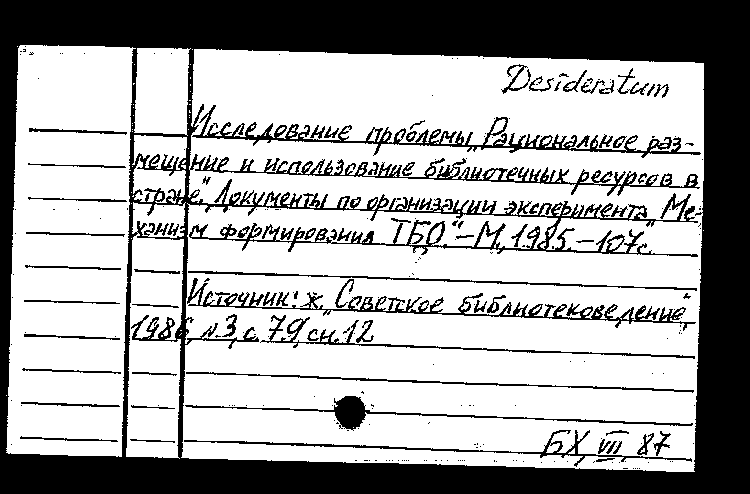 Desideratum
Исследование проблемы „Рациональное раз-
мещение и использование библиотечных ресурсов в
стране“. Документы по организации эксперимента „Ме-
ханизм формирования ТБО“. – М., 1985. – 107с.
Источник: ж. „Советское библиотековедение“,
1986, №3, с. 79, сн. 12
БХ, VII, 87